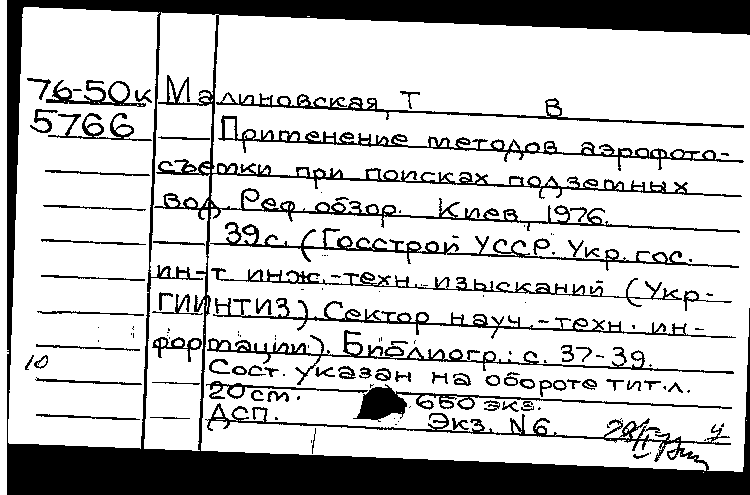 76-50к Малиновская, Т В
5766 Применение методов аэрофото-
съемки при поисках подземных
вод. Реф. обзор. Киев, 1976.
39с. (Госстрой УССР. Укр. гос.
ин-т инж.-техн. изысканий (Укр-
ГИИНТИЗ). Сектор науч.-техн. ин-
формации). Библиогр.: с. 37-39.
10 Сост. указан на обороте тит.л.
20см. 650 экз.
ДСП. Экз. N6.